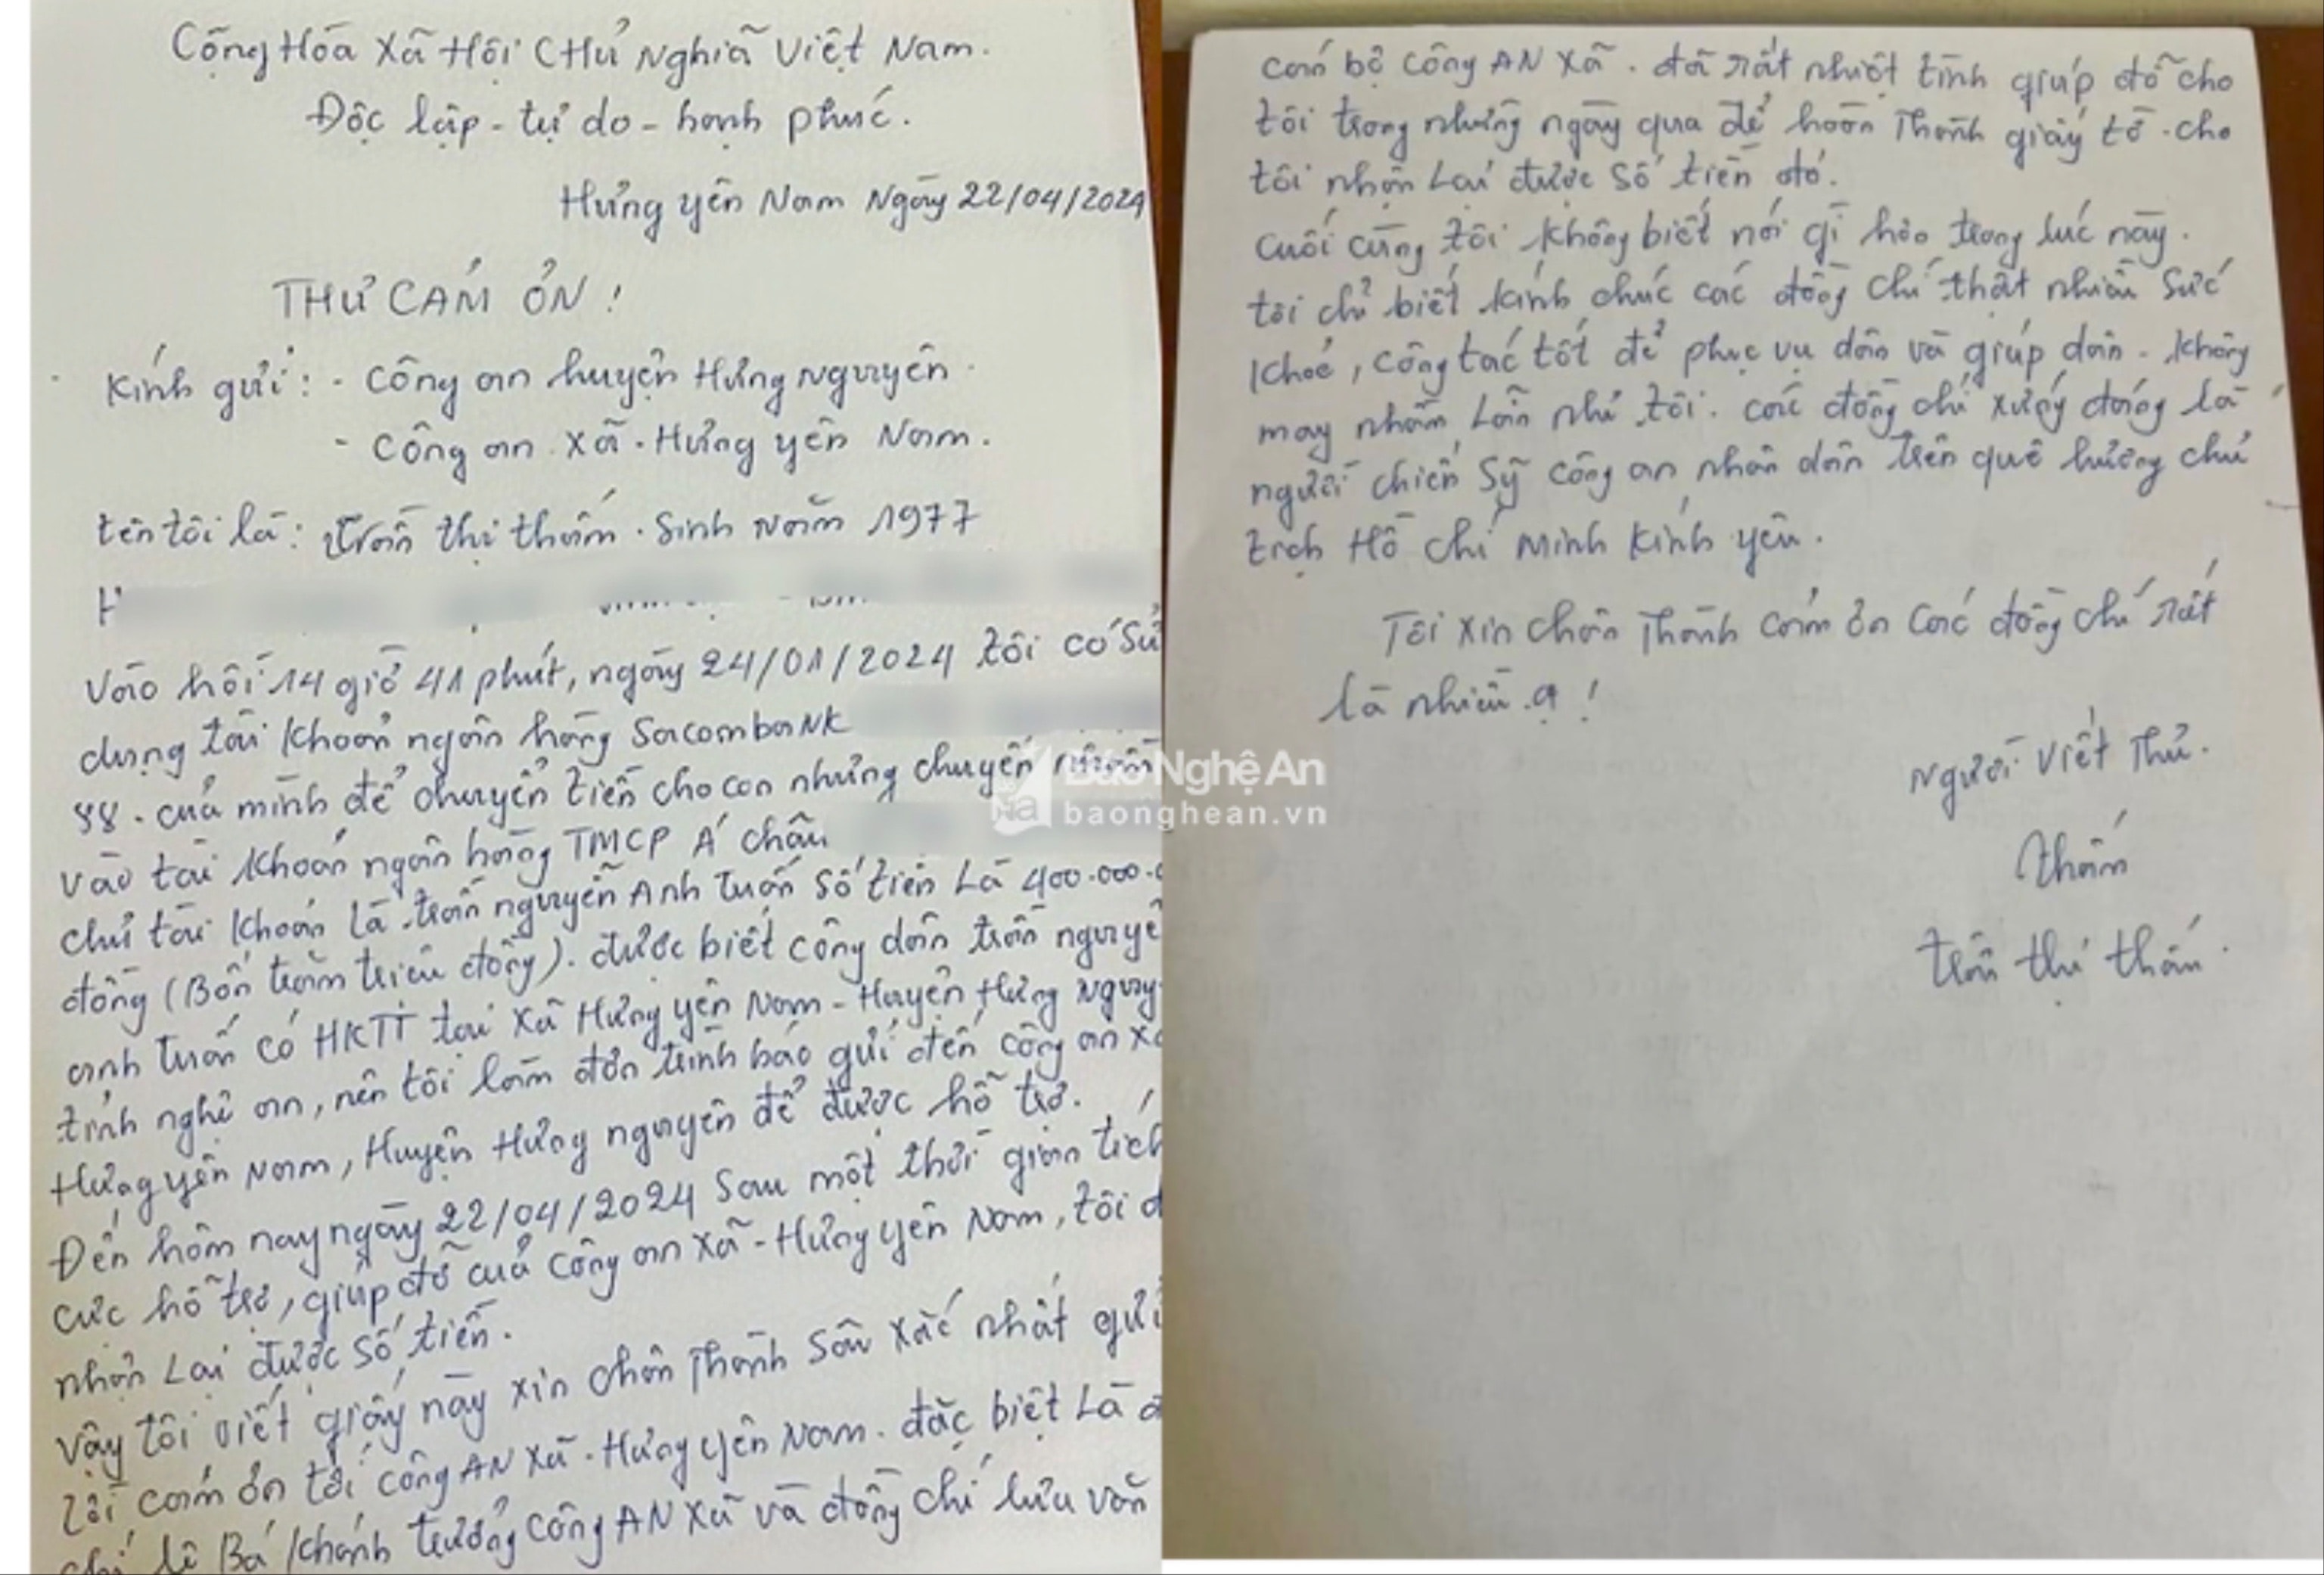 Cộng Hóa Xã Hội CHủ Nghiã Việt Nam.
Độc lập - tự do - hạnh phúc.
Hưng yên Nam Ngày 22/04/2024
THƯ CẢM ƠN!
Kính gửi: - Công an huyện Hưng Nguyên
- Công an xã - Hưng yên Nam.
tên tôi là: trần thị thắm. Sinh năm 1977
H
Vào hồi 14 giờ 41 phút, ngày 24/01/2024 tôi có sử
dụng tài khoản ngân hàng SacombaNK
88. của mình để chuyển tiền cho con nhưng chuyển nhầm
vào tài khoản ngân hàng TMCP Á châu
chủ tài khoản là trần nguyễn Anh tuấn số tiền là 400.000.0
đồng (Bốn trăm triệu đồng). được biết công dân trần nguyễ
anh tuấn có HKTT tại xã Hưng yên Nam - Huyện Hưng Nguy
tỉnh nghệ an, nên tôi làm đơn trình báo gửi đến công an xã
Hưng yên Nam, Huyện Hưng nguyên để được hỗ trợ.
Đến hôm nay ngày 22/04/2024 sau một thời gian tích
cực hỗ trợ, giúp đỡ của công an xã - Hưng yên Nam, tôi đ
nhận lại được số tiền.
Vậy tôi viết giấy này xin chân thành sâu xắc nhất gửi
lời cảm ơn tới công AN xã - Hưng yên Nam. đặc biệt là đ
chí lê Bá Khánh trưởng công AN xã và đồng chí lưu văn
cán bộ công AN xã. đã rất nhiệt tình giúp đỡ cho
tôi trong những ngày qua để hoàn thành giấy tờ. cho
tôi nhận lại được số tiền đó.
cuối cùng tôi không biết nói gì hơn trong lúc này.
tôi chỉ biết kính chúc các đồng chí thật nhiều sức
khoẻ, công tác tốt để phục vụ dân và giúp dân. không
may nhầm lẫn như tôi. các đồng chí xứng đáng là
người chiến sỹ công an nhân dân trên quê hương chủ
tịch Hồ chí minh kính yêu.
Tôi xin chân thành cảm ơn các đồng chí rất
là nhiều ạ!
Người viết thư.
thắm
trần thị thắm.
Báo Nghệ An
baonghean.vn